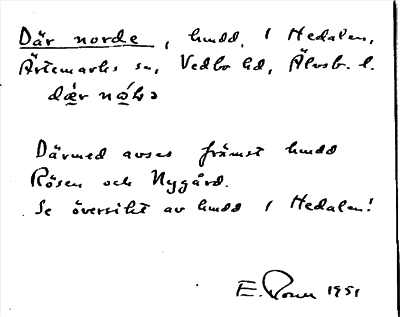 Där norde, hmdd, i Hedalen,
Ärtemarks sn, Vedbo hd, Älvsb. l.
Därmed avses främst hmdd
Rösen och Nygård.
Se översikt av hmdd i Hedalen!
E. 1951